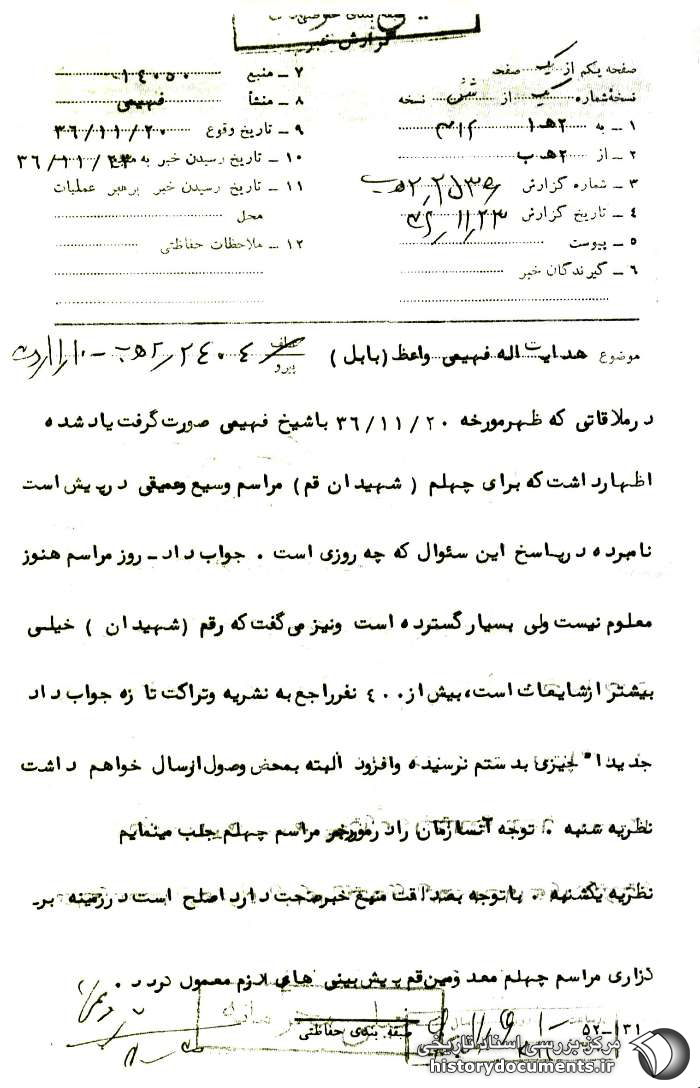 گزارش خبر
صفحه یکم از یک صفحه
نسخهٔ شماره یک از شش نسخه
۱ ـ به ۲ هـ ۱ ۳۱۲
۲ ـ از ۲ هـ ب
۳ ـ شماره گزارش
۴ ـ تاریخ گزارش
۵ ـ پیوست
۶ ـ گیرندگان خبر
۷ ـ منبع ۱۴۰۵۰
۸ ـ منشأ فهیمی
۹ ـ تاریخ وقوع ۳۶/۱۱/۲۰
۱۰ ـ تاریخ رسیدن خبر به منبع ۳۶/۱۱/۲۳
۱۱ ـ تاریخ رسیدن خبر برهبر عملیات
محل
۱۲ ـ ملاحظات حفاظتی
موضوع هدایت اله فهیمی واعظ (بابل) پیرو
درملاقاتی که ظهرمورخه ۳۶/۱۱/۲۰ باشیخ فهیمی صورت گرفت یادشده
اظهارداشت که برای چهلم (شهیدان قم) مراسم وسیع وعمیقی درپیش است
نامبرده درپاسخ این سئوال که چه روزی است . جواب داد ـ روز مراسم هنوز
معلوم نیست ولی بسیارگسترده است ونیز می‌گفت که رقم (شهیدان) خیلی
بیشتر ازشایعات است، بیش از ۴۰۰ نفرراجع به نشریه وتراکت تازه جواب داد
جدیداً چیزی بدستم نرسیده وافزود البته بمحض وصول ارسال خواهم داشت
نظریه شنبه . توجه آنسازمان رادرمورد مراسم چهلم جلب مینمایم
نظریه یکشنبه . باتوجه بصداقت منبع خبرصحت دارد اصلح است درزمینه بر
گزاری مراسم چهلم معدومین قم پیش بینی های لازم معمول گردد .
۵۲-۱۳۱
طبقه بندی حفاظتی
مرکز بررسی اسناد تاریخی
historydocuments.ir